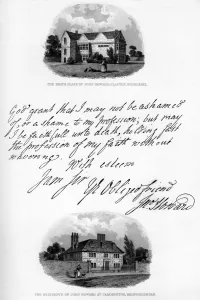 THE BIRTH PLACE OF JOHN HOWARD, CLAPTON, HACKNEY.
God grant that I may not be ashamed
of, or a shame to my profession; but may
I be faithfull unto death, holding fast
the profession of my faith without
wavering.
With esteem
I am Sir
Yr Oblig'd friend
Jno Howard
THE RESIDENCE OF JOHN HOWARD, AT CARDINGTON, BEDFORDSHIRE.